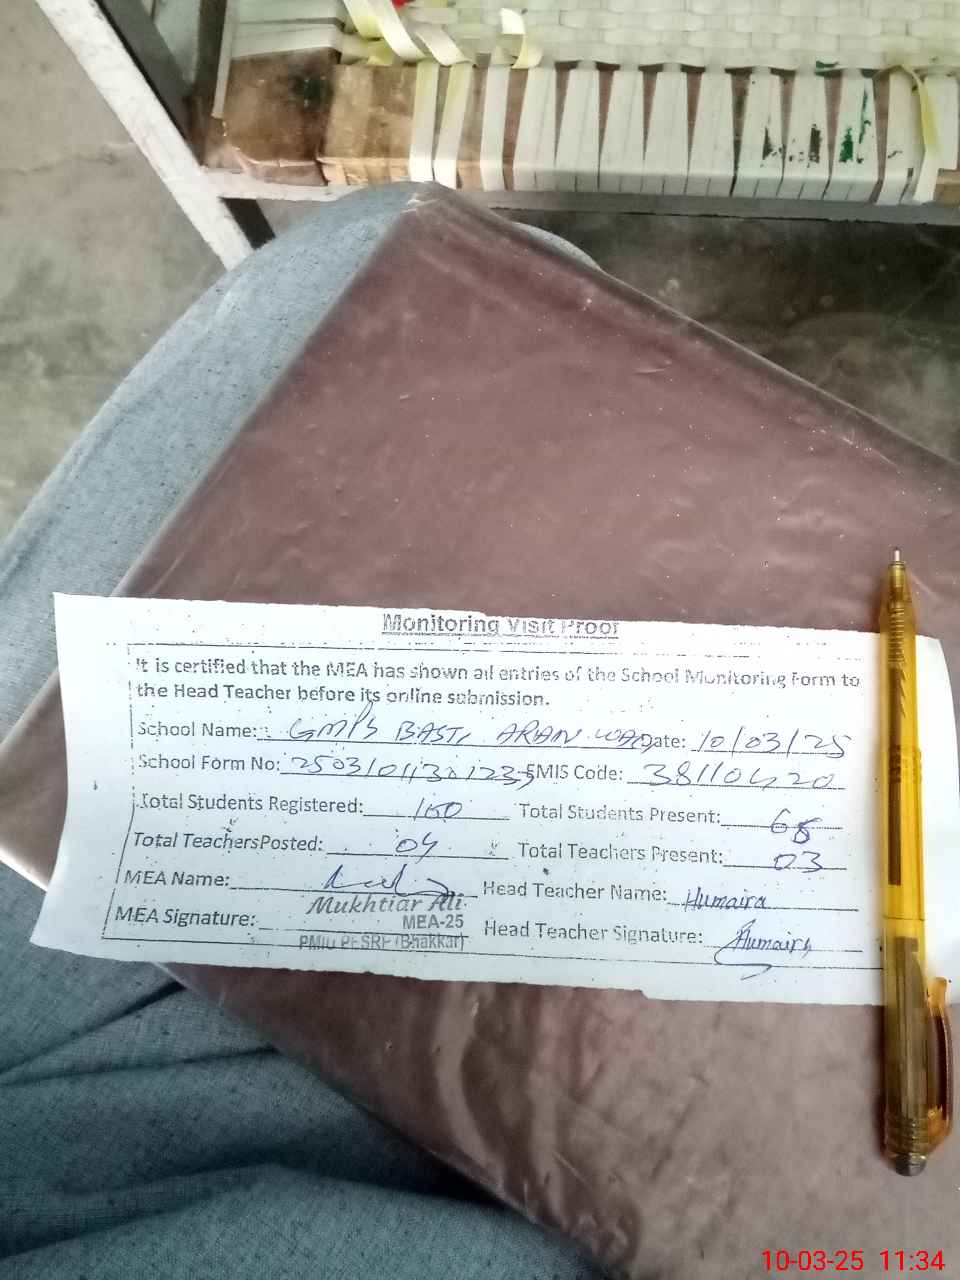 Monitoring Visit Proof
It is certified that the MEA has shown all entries of the School Monitoring Form to
the Head Teacher before its online submission.
School Name: GMPS BASTI ARAN WALA Date: 10/03/25
School Form No: EMIS Code: 38110420
Total Students Registered: 160 Total Students Present: 68
Total TeachersPosted: 04 Total Teachers Present: 03
MEA Name: Head Teacher Name: Humaira
Mukhtiar Ali
MEA Signature: MEA-25 Head Teacher Signature: Humaira
PMIU PESRP (Bhakkar)
10-03-25 11:34